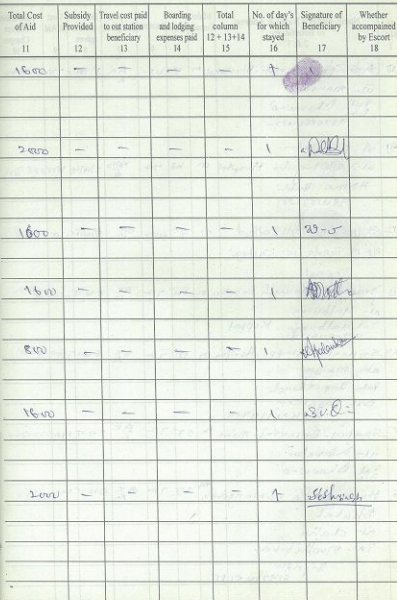 Total Cost of Aid Subsidy Provided Travel cost paid to out station beneficiary Boarding and lodging expenses paid Total column 12 + 13+14 No. of day's for which stayed Signature of Beneficiary Whether accompained by Escort
11 12 13 14 15 16 17 18
1600 - - - - 1
2000 - - - - 1
1600 - - - - 1
1600 - - - - 1
800 - - - - 1
1600 - - - - 1
2000 - - - - 1